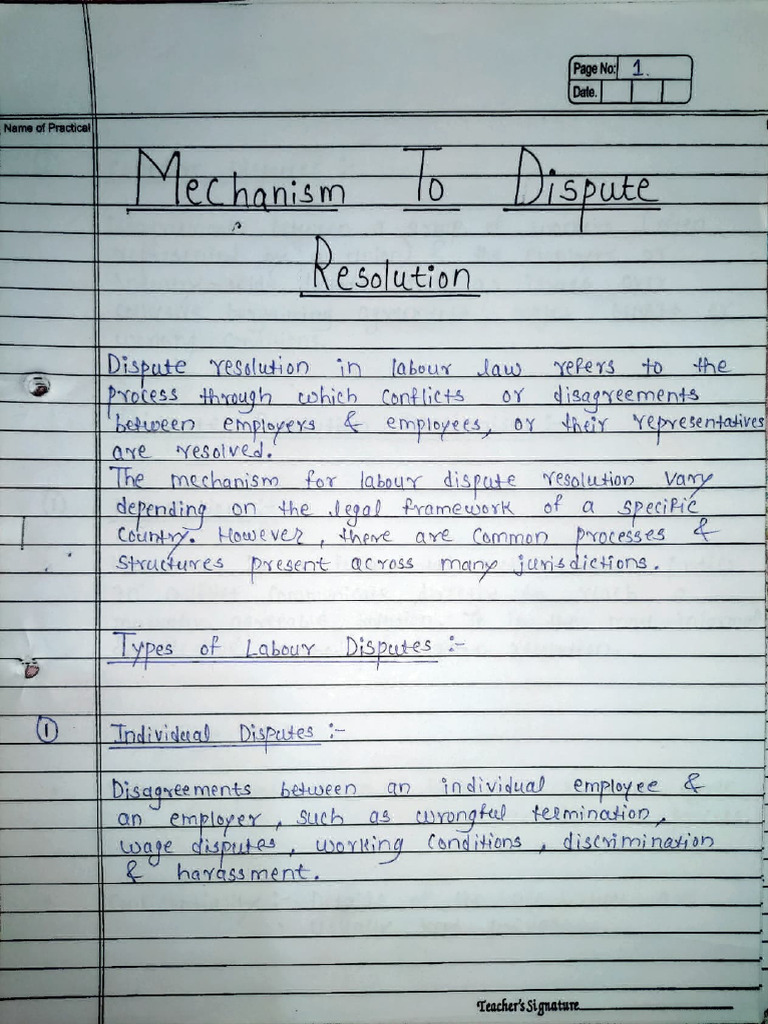 Page No: 1.
Date.
Name of Practical
Mechanism To Dispute
Resolution
Dispute resolution in labour law refers to the
process through which conflicts or disagreements
between employers & employees, or their representatives
are resolved.
The mechanism for labour dispute resolution vary
depending on the legal framework of a specific
Country. However, there are common processes &
structures present across many jurisdictions.
Types of Labour Disputes :-
① Individual Disputes :-
Disagreements between an individual employee &
an employer, such as wrongful termination,
wage disputes, working conditions, discrimination
& harassment.
Teacher's Signature